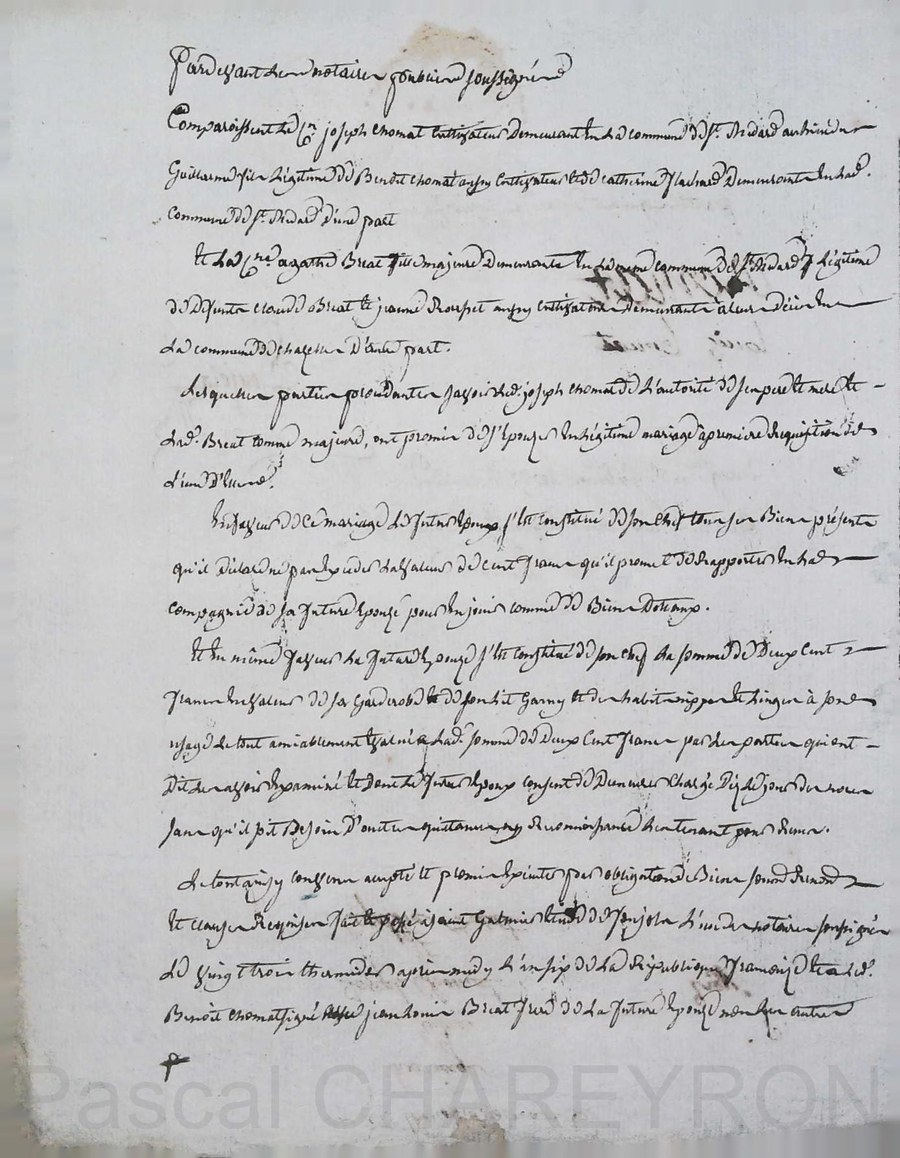 Pardevant les notaires publics soussignés
Comparoissent le Cn joseph thomas Cultivateur Demeurant en la commune de St. Médard
Guillaume fils Légitime de Benoit thomas aussi Cultivateur et de Catherine Demeurants en lad.
Commune de St. Médard d'une part
Et la Cne agathe Breat fille majeure Demeurante en la même commune de St Médard Légitime
de Défunts Claude Breat et jeanne aussy Cultivateurs Demeurants a leur décès en
La commune de Chazelles D'autre part.
Lesquelles parties procédantes savoir led. joseph thomas de L'autorité de ses père et mère et
Lad. Breat comme majeure, ont promis de s'Epouser en Légitime mariage a première Réquisition de
L'une D'Elles.
En faveur de ce mariage le futur Epoux s'est constitué de son chef tous ses Biens présents
qu'il déclare ne pas Excéder la valeur de cent francs qu'il promet de Rapporter en la
Compagnie de sa future Epouse pour en jouir comme de Biens Dotaux.
Et en même faveur La future Epouse s'est constitué de son chef la somme de Deux Cent
francs En valeur de sa Garderobe et de son Lit Garny et des habits nippes et Linges à son
usage le tout amiablement Evalué a Lad. somme de Deux Cent francs par les parties qui ont
Dit les avoir Examiné et Dont le futur Epoux consent de Demeurer Chargé Dès le jour des noces
sans qu'il soit Besoin D'autres quittances ny Reconnoissance Le tenant pour Reçu.
Le tout ainsy convenu accepté et promis Exécuter par obligations de Biens
et clauses Requises fait et passé à saint Galmier Etude de L'un des notaires soussignés
Le vingt trois thermidor après midy L'an six de La République française Et a Led.
Benoit thomas signé avec jean Louis Breat frère de La future Epouse non les autres
Pascal CHAREYRON